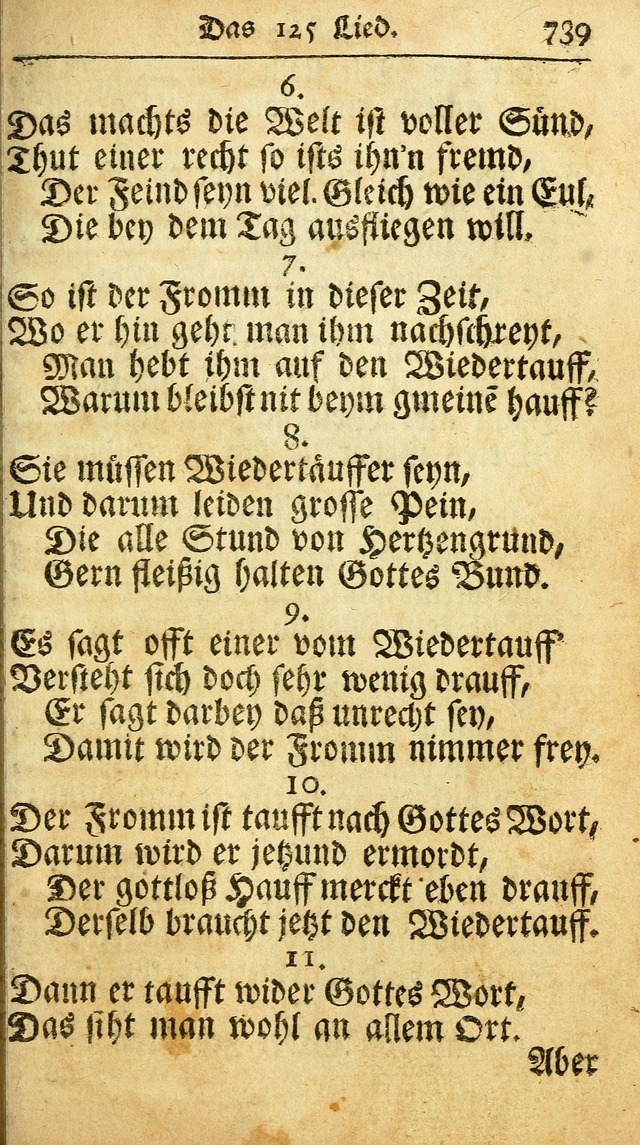 Das 125 Lied. 739
6.
Das machts die Welt ist voller Sünd,
Thut einer recht so ists ihn'n fremd,
Der Feind seyn viel. Gleich wie ein Eul,
Die bey dem Tag ausfliegen will.
7.
So ist der Fromm in dieser Zeit,
Wo er hin geht man ihm nachschreyt,
Man hebt ihm auf den Wiedertauff,
Warum bleibst nit beym gmeinē hauff?
8.
Sie müssen Wiedertäuffer seyn,
Und darum leiden grosse Pein,
Die alle Stund von Hertzengrund,
Gern fleißig halten Gottes Bund.
9.
Es sagt offt einer vom Wiedertauff
Versteht sich doch sehr wenig drauff,
Er sagt darbey daß unrecht sey,
Damit wird der Fromm nimmer frey.
10.
Der Fromm ist taufft nach Gottes Wort,
Darum wird er jetzund ermordt,
Der gottloß Hauff merckt eben drauff,
Derselb braucht jetzt den Wiedertauff.
11.
Dann er taufft wider Gottes Wort,
Das siht man wohl an allem Ort.
Aber